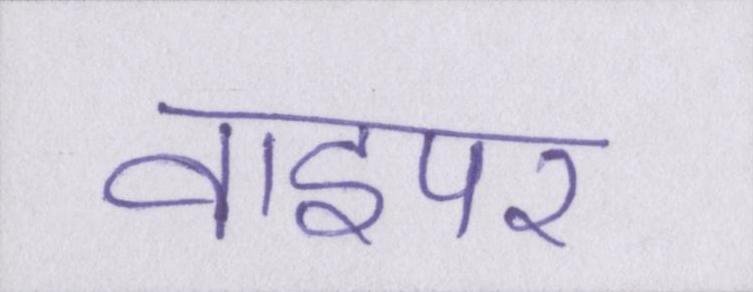 वाइपर